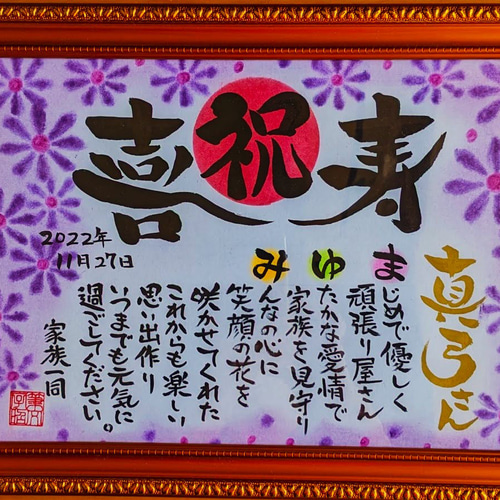 喜祝寿
真弓さん
まじめで優しく
頑張り屋さん
ゆたかな愛情で
家族を見守り
みんなの心に
笑顔の花を
咲かせてくれた
これからも楽しい
思い出作り
いつまでも元気に
過ごしてください。
家族一同
2022年
11月27日